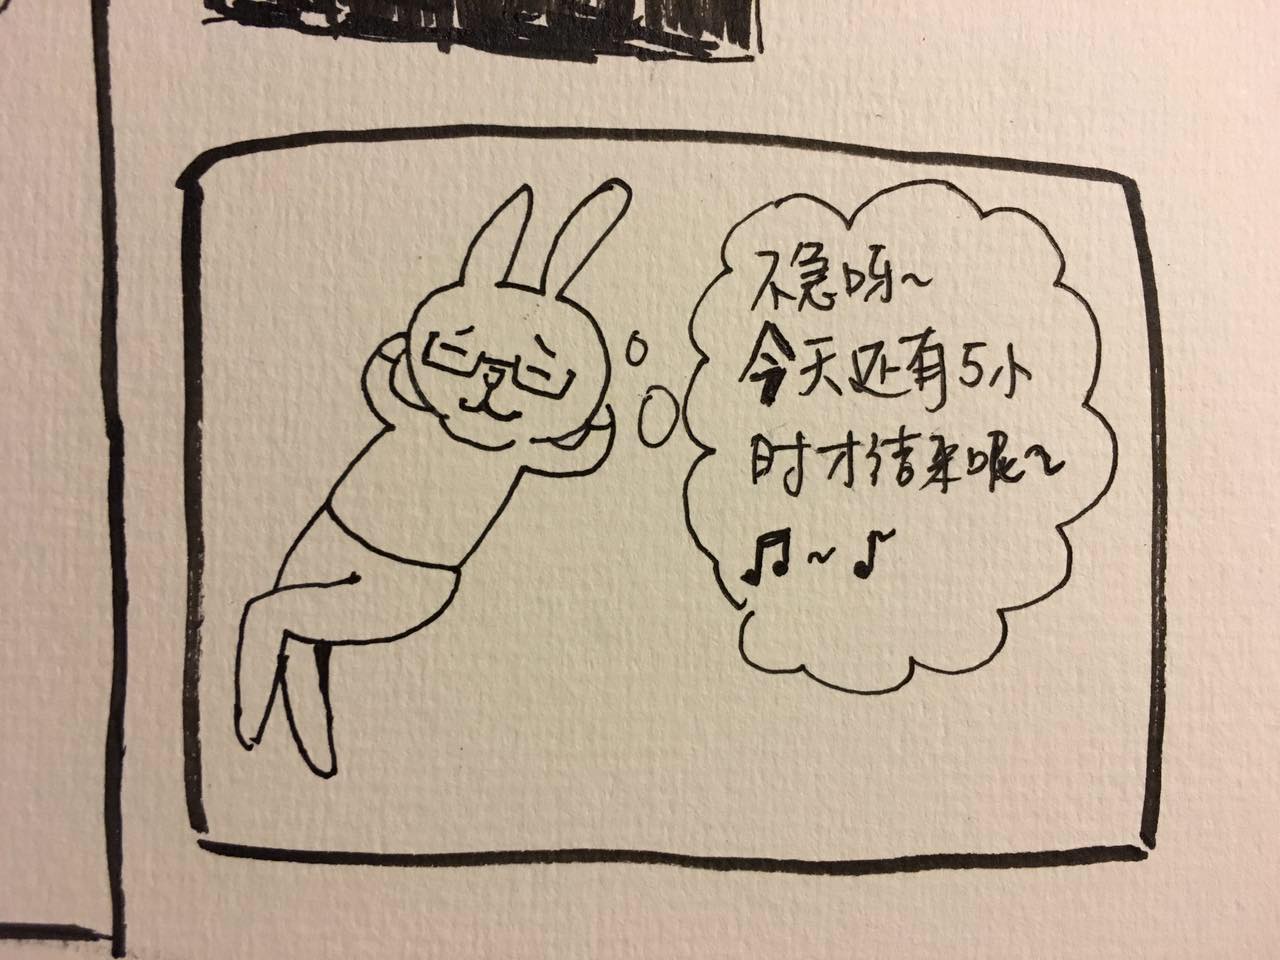 不急呀~
今天还有5小
时才结束呢~
♫~♪